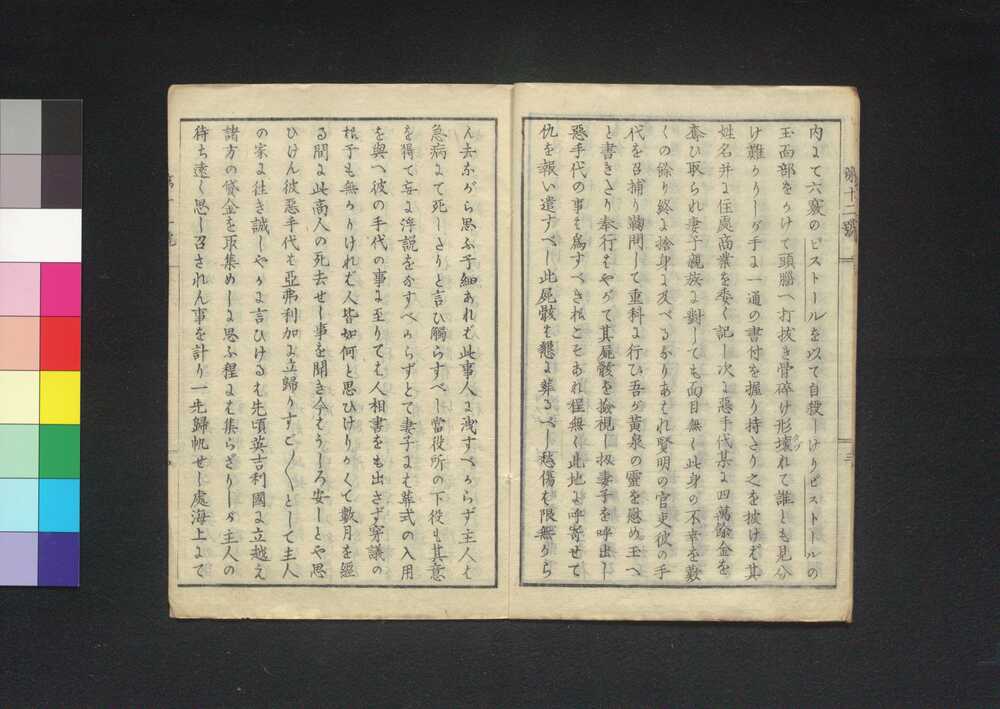 第十二號
内にて六竅のピストールを以て自殺しけりピストールの
玉面部をかけて頭腦へ打抜き骨碎け形壊れて誰とも見分
け難かりしが手に一通の書付を握り持たり之を披けば其
姓名并に住處商業を委く記し次に惡手代某に四萬餘金を
奪ひ取られ妻子親族に對しても面目無く此身の不幸を歎
くの餘り終に捨身に及べるなりあはれ賢明の官吏彼の手
代を召捕り鞫問して重科に行ひ吾が黄泉の靈を慰め玉へ
と書きたり奉行もやがて其屍骸を撿視し扨妻子を呼出し
惡手代の事は爲すべき様こそあれ程無く此地に呼寄せて
仇を報い遣すべし此屍骸を懇に葬るべし愁傷は限無から
三
ん去ながら思ふ子細あれば此事人に洩すべからず主人は
急病にて死したりと言ひ觸らすべし當役所の下役も其意
を得て妄に浮説をなすべからずとて妻子には葬式の入用
を與へ彼の手代の事に至りては人相書をも出さず穿議の
様子も無かりければ人皆如何と思ひけりかくて數月を經
る間に此商人の死去せし事を聞き今はうしろ安しとや思
ひけん彼惡手代も亞弗利加に立歸りすご〱として主人
の家に往き誠しやかに言ひけるは先頃英吉利國に立越え
諸方の貸金を取集めしに思ふ程には集らざりしが主人の
待ち遠く思し召されん事を計り一先歸帆せし處海上にて